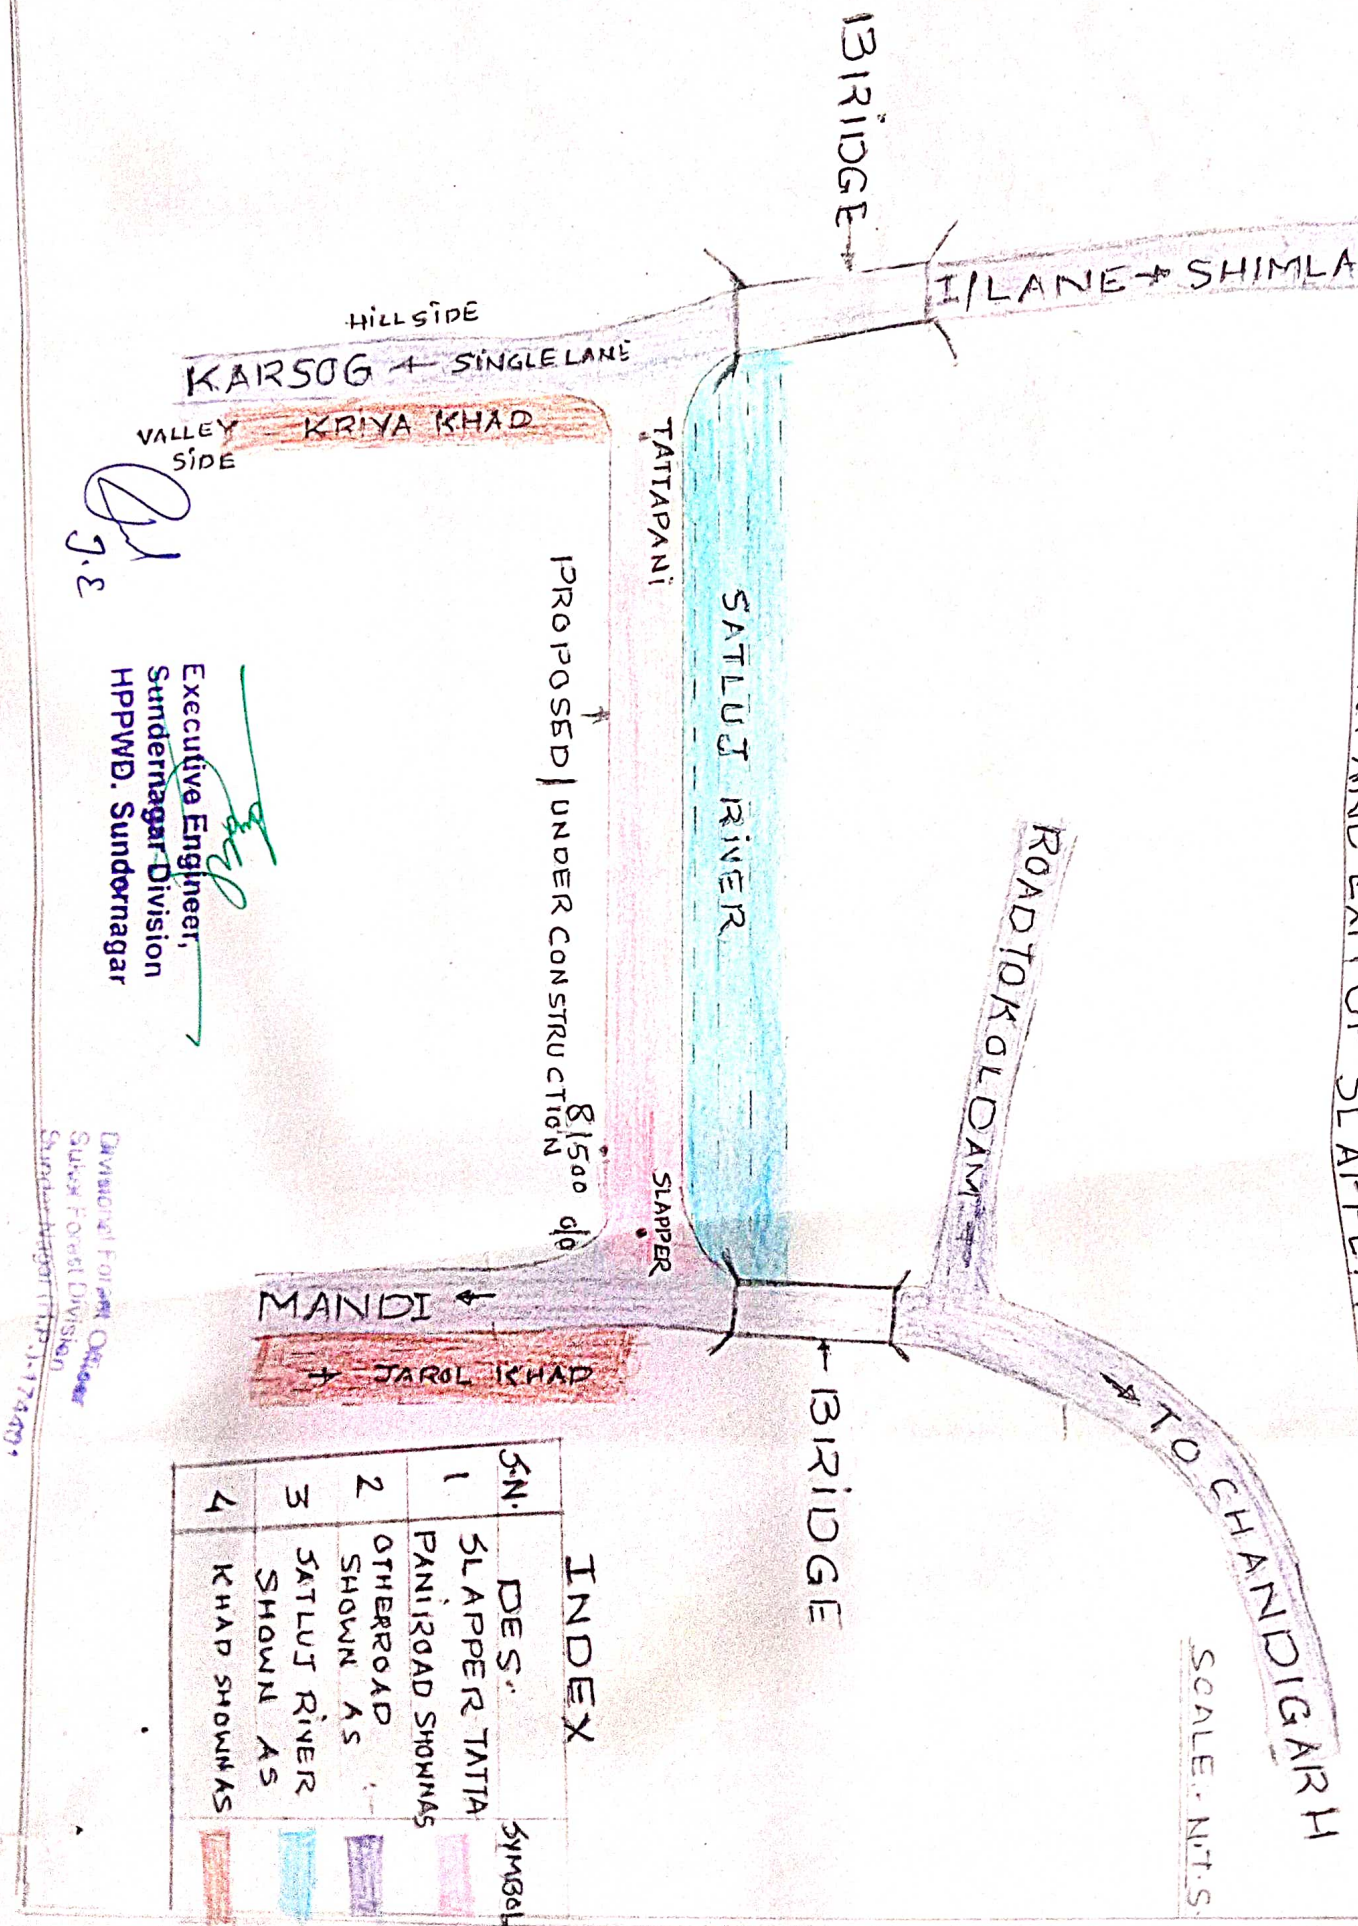 AND LAY
SCALE. N.T.S
BRIDGE
I/LANE → SHIMLA
HILL SIDE
KARSOG ← SINGLE LANE
VALLEY SIDE
KRIYA KHAD
TATTAPANI
SATLUJ RIVER
PROPOSED/UNDER CONSTRUCTION
8/500
SLAPPER
ROAD TO KOLDAM
TO CHANDIGARH
BRIDGE
MANDI ←
JAROL KHAD
J.E
Executive Engineer,
Sundernagar Division
HPPWD. Sundernagar
Divisional Forest Officer
Suket Forest Division
INDEX
S.N. DES. SYMBOL
1 SLAPPER TATTA
PANI ROAD SHOWN AS
2 OTHER ROAD
SHOWN AS
3 SATLUJ RIVER
SHOWN AS
4 KHAD SHOWN AS